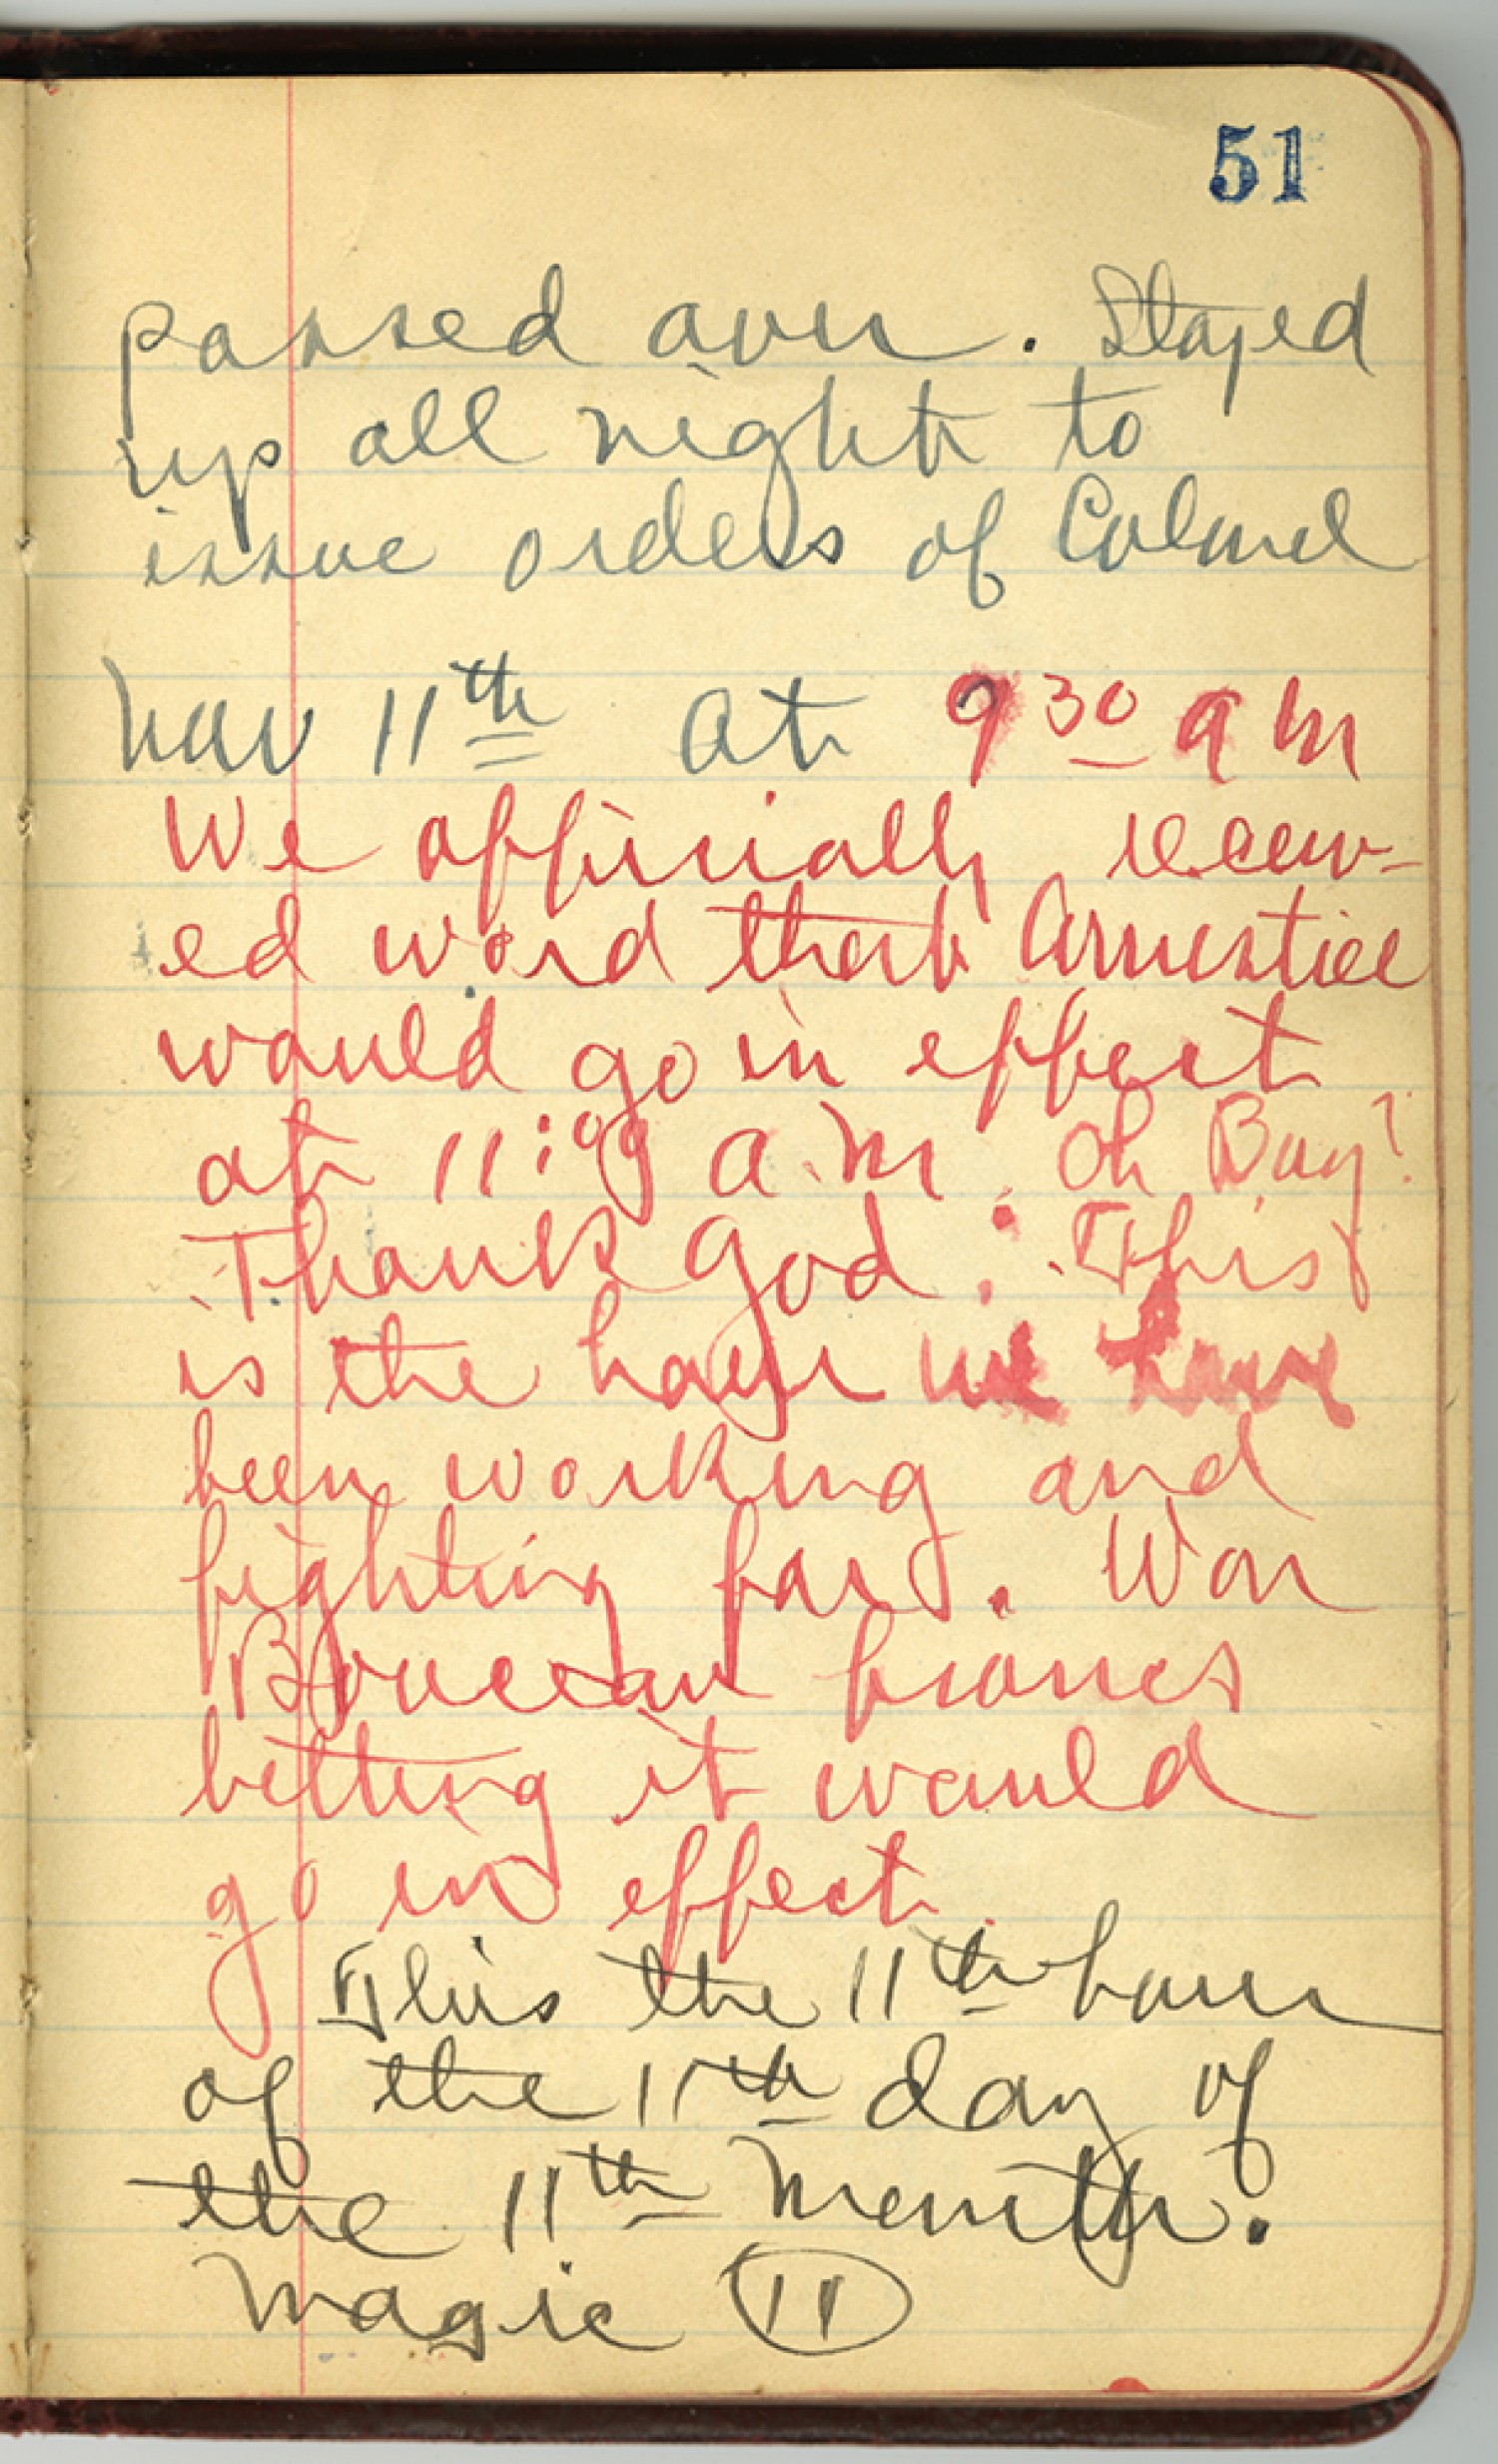 51
passed over. Stayed
up all night to
issue orders of Colonel
Nov 11th at 9 30 a m
We officially receiv-
ed word that Armistice
would go in effect
at 11:00 a.m. Oh Boy!
Thank God. This
is the hour we have
been working and
fighting for. Won
francs
betting it would
go in effect.
This the 11th hour
of the 11th day of
the 11th month.
Magic 11